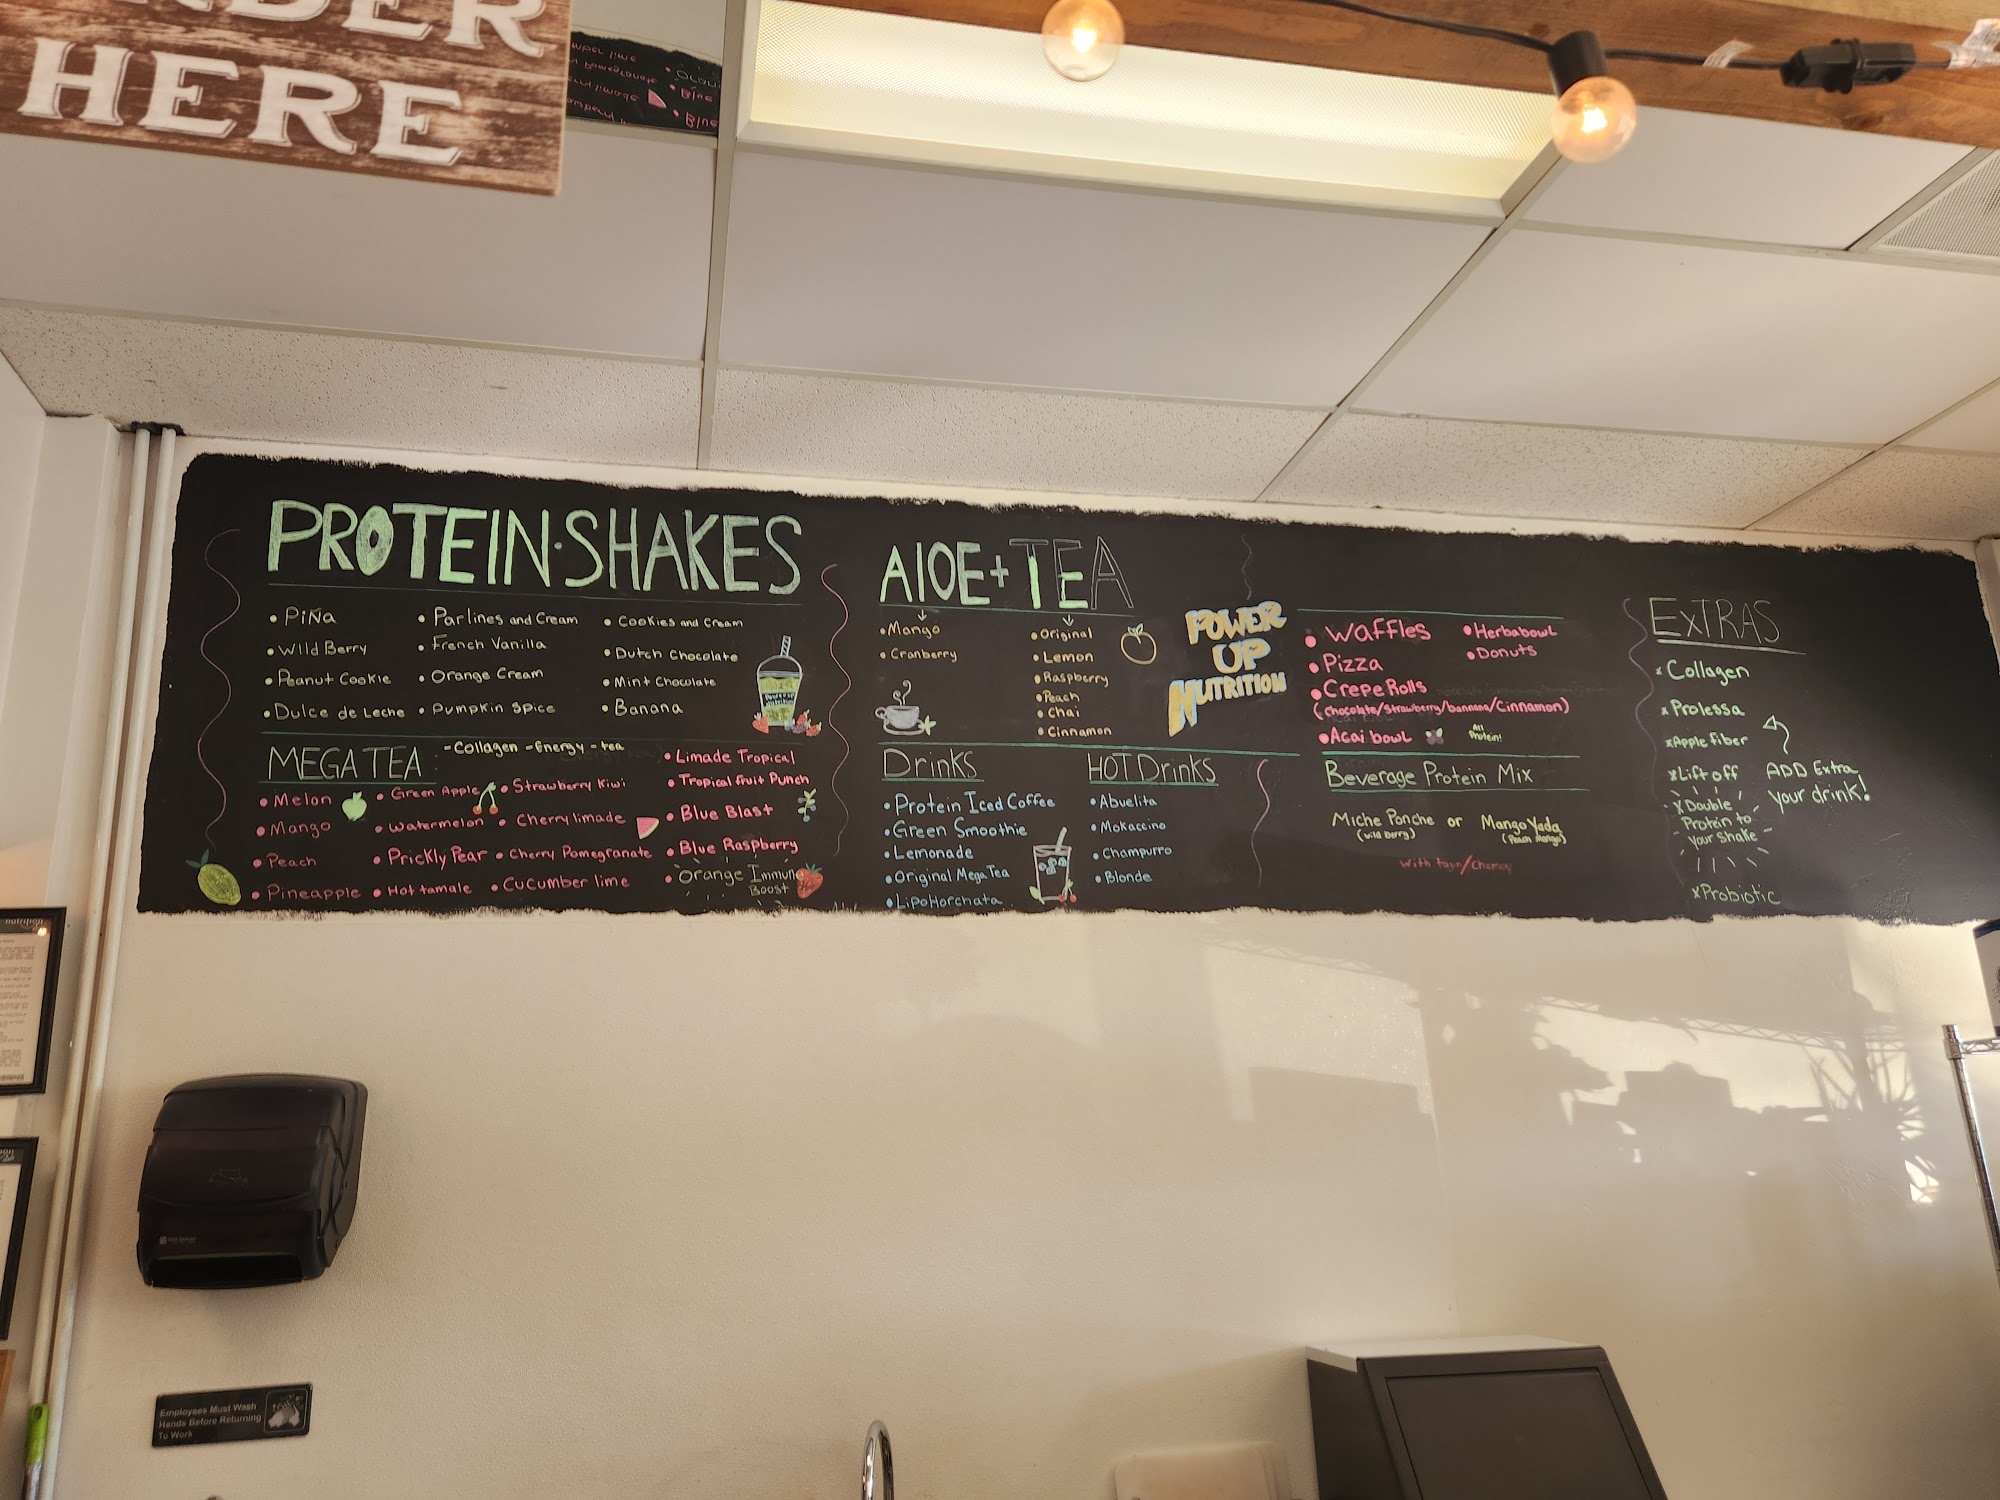 RDER
HERE
PROTEIN·SHAKES
• Piña
• Wild Berry
• Peanut Cookie
• Dulce de Leche
• Parlines and Cream
• French Vanilla
• Orange Cream
• Pumpkin Spice
• Cookies and Cream
• Dutch Chocolate
• Mint Chocolate
• Banana
MEGA TEA
-Collagen -Energy -tea
• Melon
• Mango
• Peach
• Pineapple
• Green Apple
• Watermelon
• Prickly Pear
• Hot tamale
• Strawberry Kiwi
• Cherry limade
• Cherry Pomegranate
• Cucumber lime
• Limade Tropical
• Tropical fruit Punch
• Blue Blast
• Blue Raspberry
• Orange Immune
Boost
AlOE+TEA
• Mango
• Cranberry
• Original
• Lemon
• Raspberry
• Peach
• Chai
• Cinnamon
POWER
UP
NUTRITION
Drinks
• Protein Iced Coffee
• Green Smoothie
• Lemonade
• Original Mega Tea
• LipoHorchata
HOT Drinks
• Abuelita
• Mokaccino
• Champurro
• Blonde
• Waffles
• Pizza
• Crepe Rolls
(chocolate/Strawberry/bannana/Cinnamon)
• Acai bowl
All
Protein!
• Herbabowl
• Donuts
Beverage Protein Mix
Miche Ponche or Mango Yada
(wild berry) (Peach Mango)
With tajin/Chamoy
EXTRAS
x Collagen
x Prolessa
x Apple fiber
x Lift off
x Double
Protein to
your shake
x Probiotic
ADD Extra
your drink!
Employees Must Wash
Hands Before Returning
To Work